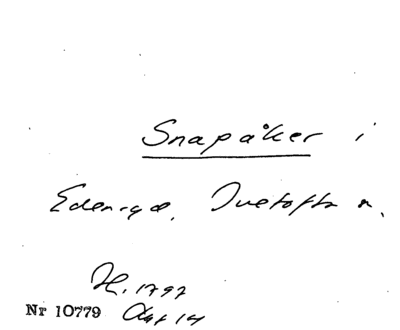 Snapåker i
Edenryd, Ivetofta n.
H. 1797
Nr 10779 Akt 14